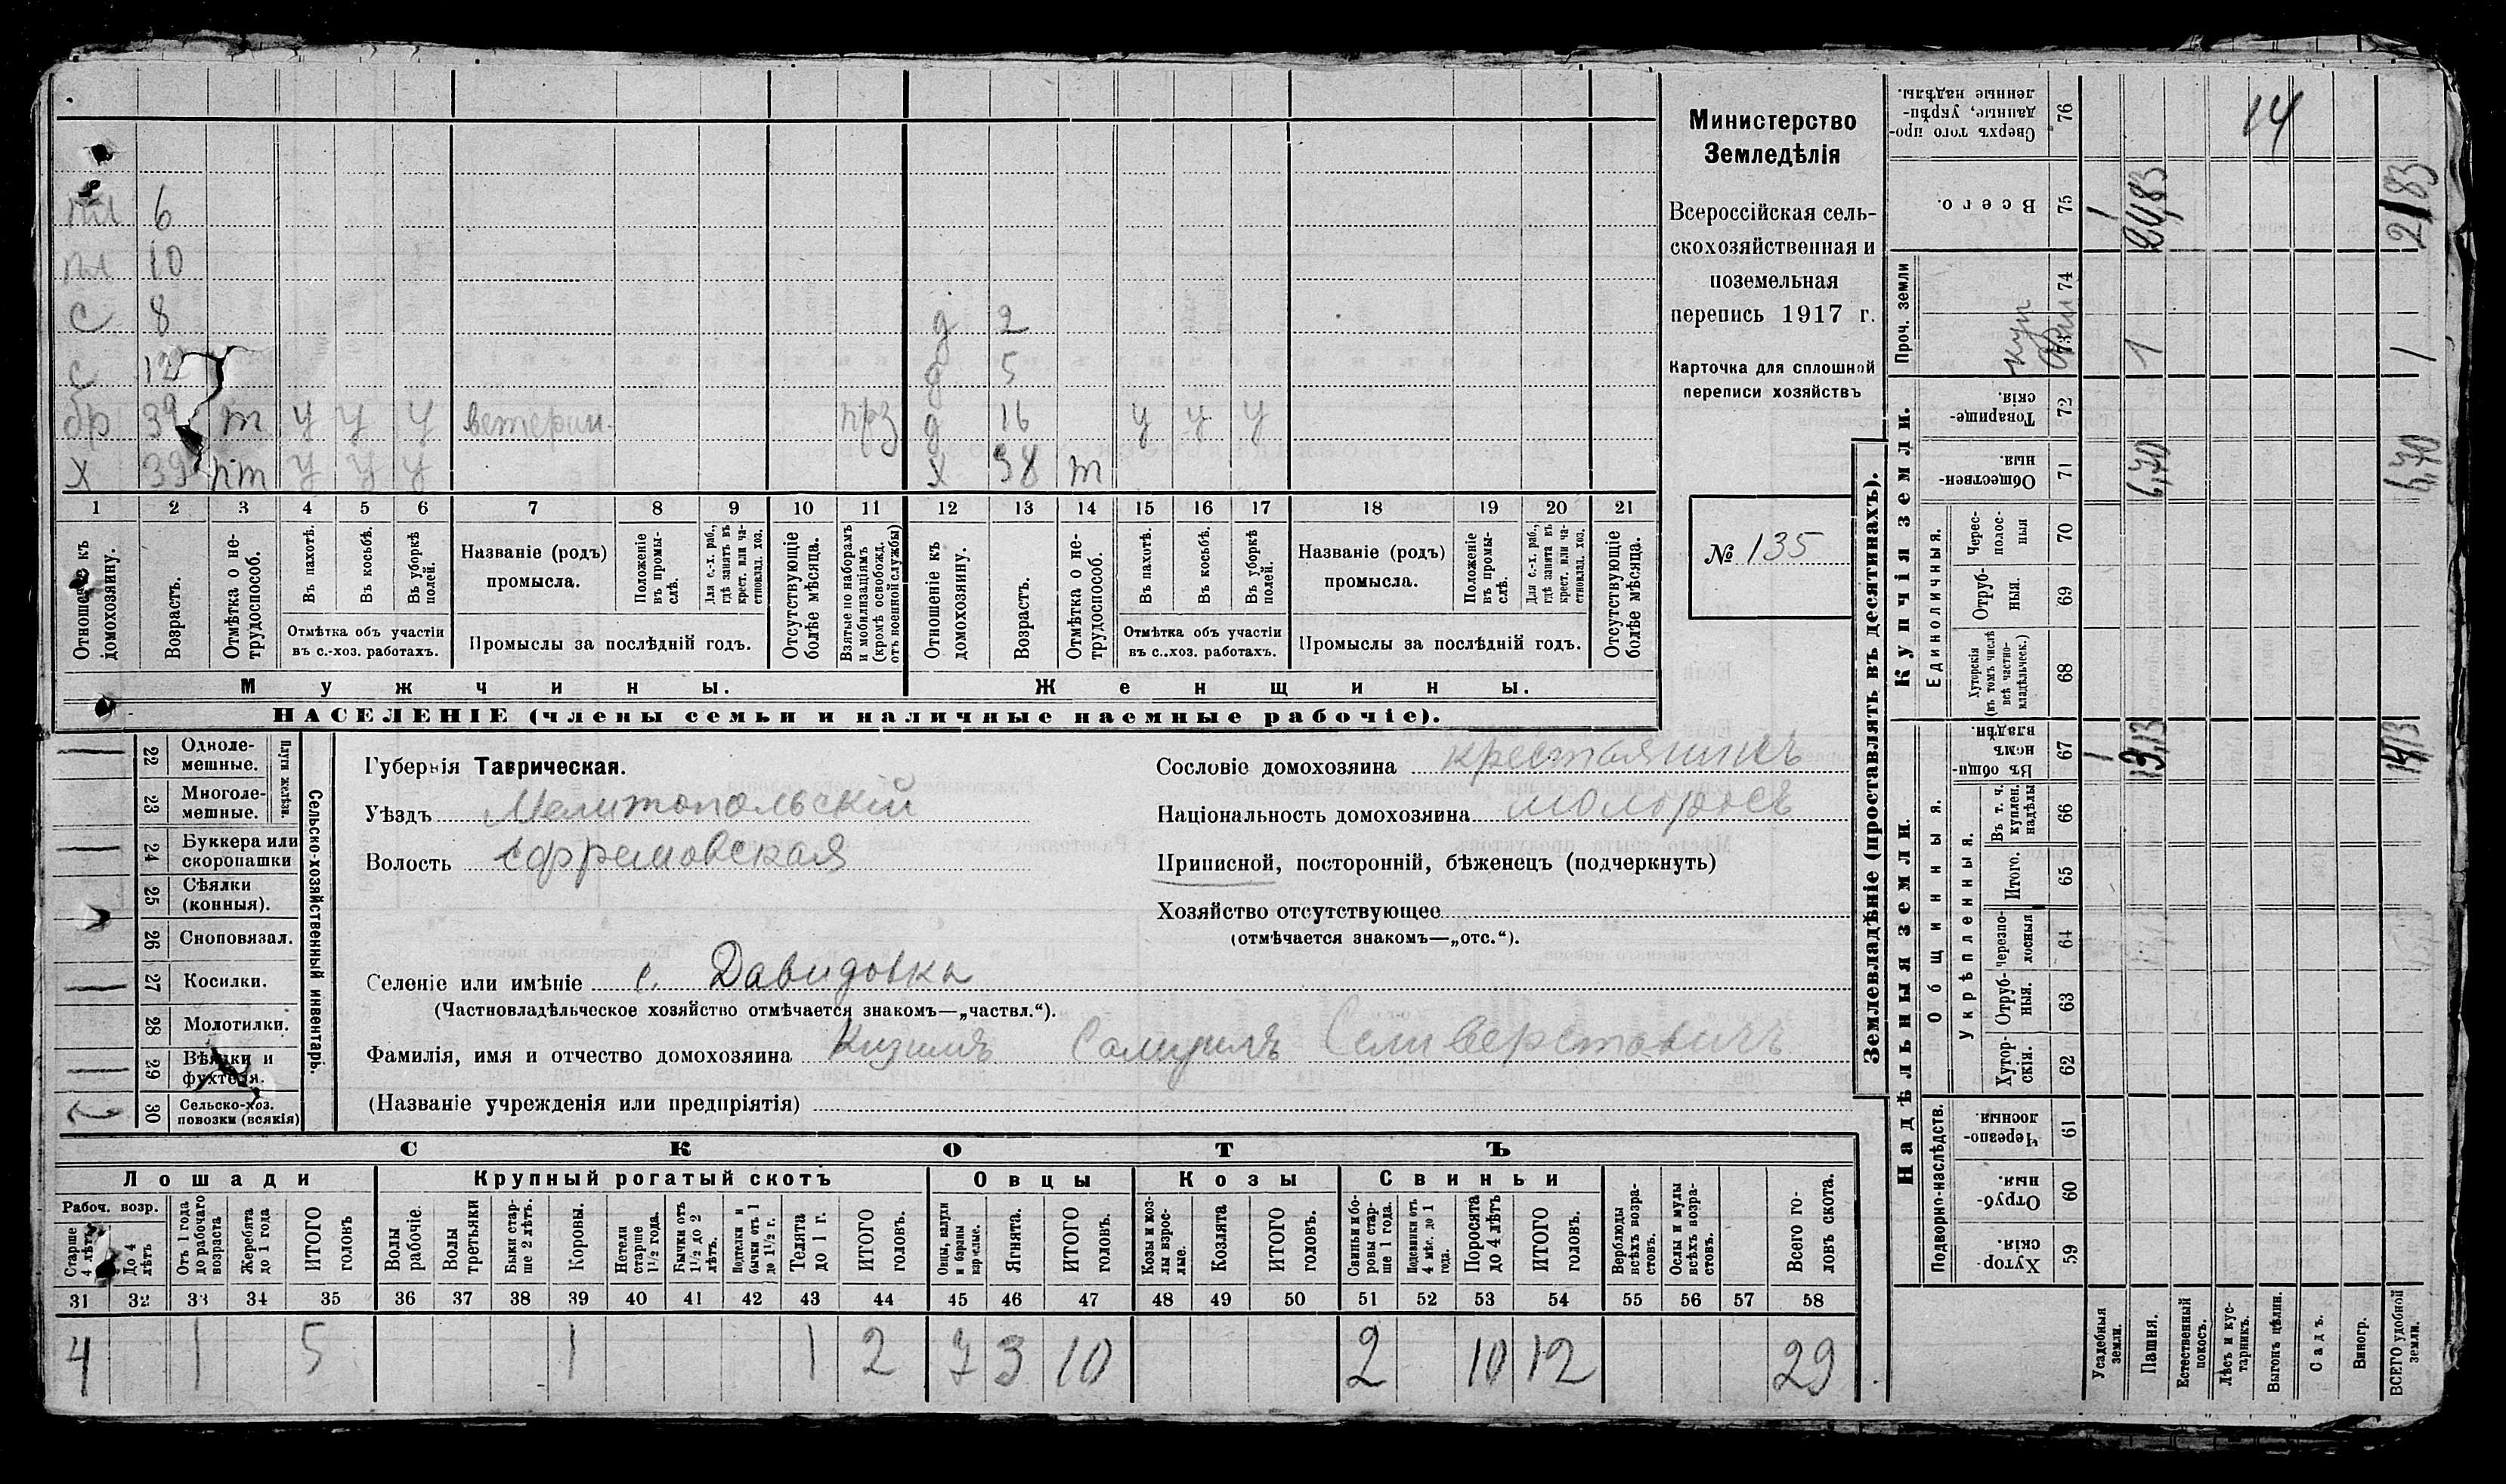 пл 6
пл 10
с 8 д 2
с 12 д 5
бр 39 т у у у ветерин. прз д 16 у у у
х 39 пт у у у х 38 т
1 2 3 4 5 6 7 8 9 10 11 12 13 14 15 16 17 18 19 20 21
Отношеніе къ домохозяину.
Возрастъ.
Отмѣтка о не-
трудоспособ.
Въ пахотѣ.
Въ косьбѣ.
Въ уборкѣ
полей.
Отмѣтка объ участіи
въ с.-хоз. работахъ.
Названіе (родъ)
промысла.
Положеніе
въ промы-
слѣ.
Для с.-х. раб.,
гдѣ занятъ въ
крест. или ча-
стновлад. хоз.
Промыслы за послѣдній годъ.
Отсутствующіе
болѣе мѣсяца.
Взятые по наборамъ
и мобилизаціямъ
(кромѣ освобожд.
отъ военной службы)
Отношеніе къ
домохозяину.
Возрастъ.
Отмѣтка о не-
трудоспособ.
Въ пахотѣ.
Въ косьбѣ.
Въ уборкѣ
полей.
Отмѣтка объ участіи
въ с.-хоз. работахъ.
Названіе (родъ)
промысла.
Положеніе
въ промы-
слѣ.
Для с.-х. раб.,
гдѣ занята въ
крест. или ча-
стновлад. хоз.
Промыслы за послѣдній годъ.
Отсутствующіе
болѣе мѣсяца.
Мужчины.
Женщины.
НАСЕЛЕНІЕ (члены семьи и наличные наемные рабочіе).
Министерство
Земледѣлія
Всероссійская сель-
скохозяйственная и
поземельная
перепись 1917 г.
Карточка для сплошной
переписи хозяйствъ
№ 135
22 Одноле-
мешные.
23 Многоле-
мешные.
Плуги желѣзн.
24 Буккера или
скоропашки
25 Сѣялки
(конныя).
26 Сноповязал.
27 Косилки.
28 Молотилки.
29 Вѣялки и
фухтеля.
30 Сельско-хоз.
повозки (всякія)
Сельско-хозяйственный инвентарь.
Губернія Таврическая.
Уѣздъ Мелитопольскій
Волость Ефремовская
Селеніе или имѣніе с. Давидовка
(Частновладѣльческое хозяйство отмѣчается знакомъ—„частвл.“).
Фамилія, имя и отчество домохозяина Кизимъ Самуилъ Селиверстовичъ
(Названіе учрежденія или предпріятія)
Сословіе домохозяина крестьянинъ
Національность домохозяина малоросъ
Приписной, посторонній, бѣженецъ (подчеркнуть)
Хозяйство отсутствующее
(отмѣчается знакомъ—„отс.“).
СКОТЪ
Лошади
Крупный рогатый скотъ
Овцы
Козы
Свиньи
Рабоч. возр.
Старше
4 лѣтъ
До 4
лѣтъ
Отъ 1 года
до рабочаго
возраста
Жеребята
до 1 года
ИТОГО
головъ
Волы
рабочіе.
Волы
третьяки
Быки стар-
ше 2 лѣтъ.
Коровы.
Нетели
старше
1½ года.
Бычки отъ
1½ до 2
лѣтъ.
Подтелки и
бычки отъ 1
до 1½ г.
Телята
до 1 г.
ИТОГО
головъ.
Овцы, валухи
и бараны
взрослые.
Ягнята.
ИТОГО
головъ.
Козы и коз-
лы взрос-
лые.
Козлята
ИТОГО
головъ.
Свиньи и бо-
ровы стар-
ше 1 года.
Подсвинки отъ
4 мѣс. до 1
года.
Поросята
до 4 лѣтъ
ИТОГО
головъ.
Верблюды
всѣхъ возра-
стовъ.
Ослы и мулы
всѣхъ возра-
стовъ.
Всего го-
ловъ скота.
31 32 33 34 35 36 37 38 39 40 41 42 43 44 45 46 47 48 49 50 51 52 53 54 55 56 57 58
4 1 5 1 1 2 7 3 10 2 10 12 29
Землевладѣніе (проставлять въ десятинахъ).
Сверхъ того про-
данные, укрѣп-
ленные надѣлы.
76 14
Всего.
75 1 21/83
Проч. земли
74
73 куп 1 1
Купчія земли.
Товарище-
скія.
72
Обществен-
ныя.
71 6,70 6,70
Единоличныя.
Черес-
полос-
ныя
70
Отруб-
ныя.
69
Хуторскія
(въ томъ числѣ
всѣ частно-
владѣльческ.)
68
Надѣльныя земли.
Общинныя.
Въ общин-
номъ
владѣн.
67 1 13,13 14/13
Укрѣпленныя.
Въ т. ч.
куплен.
надѣлы
66
Итого.
65
черезпо-
лосныя
64
Отруб-
ныя.
63
Хутор-
скія.
62
Подворно-наслѣдств.
Черезпо-
лосныя
61
Отруб-
ныя.
60
Хутор-
скія.
59
Усадебныя
земли.
Пашня.
Естественный
покосъ.
Лѣсъ и кус-
тарникъ.
Выгонъ цѣлин.
Садъ.
Виногр.
ВСЕГО удобной
земли.